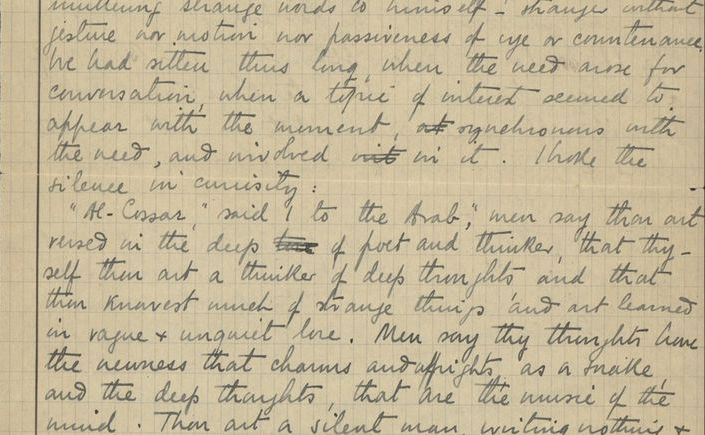 muttering strange words to himself - stranger without
gesture nor motion nor passiveness of eye or countenance.
We had sitten thus long, when the need arose for
conversation, when a topic of interest seemed to
appear with the moment, at synchronous with
the need, and involved wit in it. I broke the
silence in curiosity:
"Al-Cossar," said I to the Arab, "men say thou art
versed in the deep lore of poet and thinker, that thy-
self thou art a thinker of deep thoughts and that
thou knowest much of strange things and art learned
in vague & unquiet lore. Men say thy thoughts have
the newness that charms and affrights, as a snake,
and the deep thoughts, that are the music of the
mind. Thou art a silent man, writing nothing &